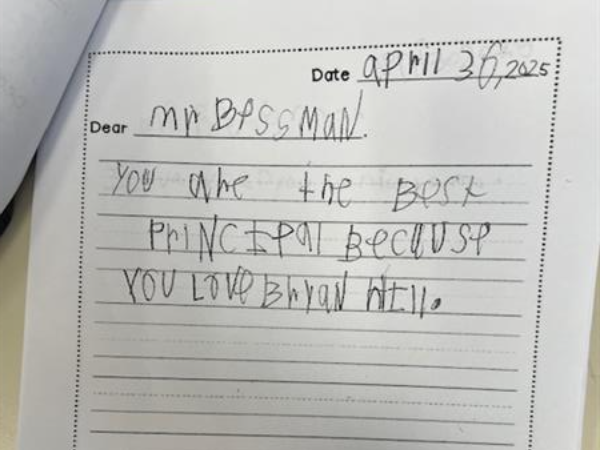 Date april 30, 2025
Dear mr BessMaN.
YOU are the Best
PriNCIpal Because
YOU LOVe BryaN HIll.